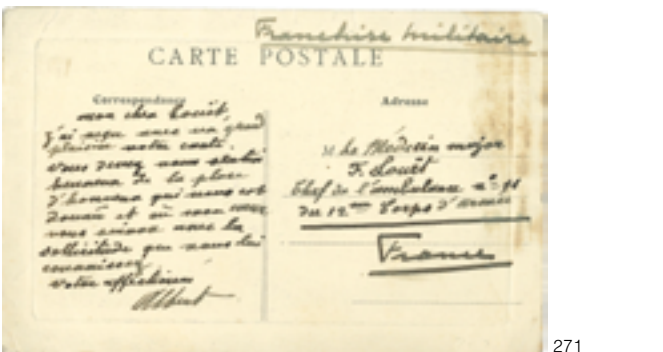 Franchise militaire
CARTE POSTALE
Correspondance
mon cher Louët,
j'ai reçu avec un grand
plaisir votre carte.
Vous devez vous sentir
heureux de la place
d'honneur qui vous est
donnée et où mon cœur
vous suivra avec la
sollicitude que vous lui
connaissez
votre affectionné
Albert
Adresse
Mr Le Médecin major
F. Louët
Chef de l'ambulance n° 11
du 12me Corps d'armée
France
271